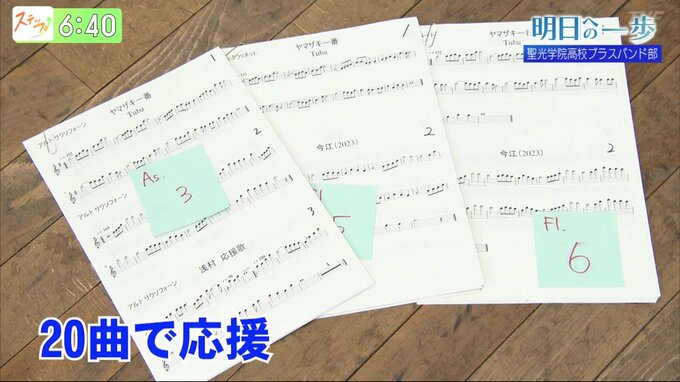 ステップ
6:40
明日への一歩
聖光学院高校ブラスバンド部
1
ヤマザキ一番
Tuba
アルト サクソフォーン
2
アルト サクソフォーン
As.
3
アルト サクソフォーン
3
浅村 応援歌
1
ヤマザキ一番
Tuba
2
5
ヤマザキ一番
Tuba
今江(2023)
2
Fl.
6
20曲で応援